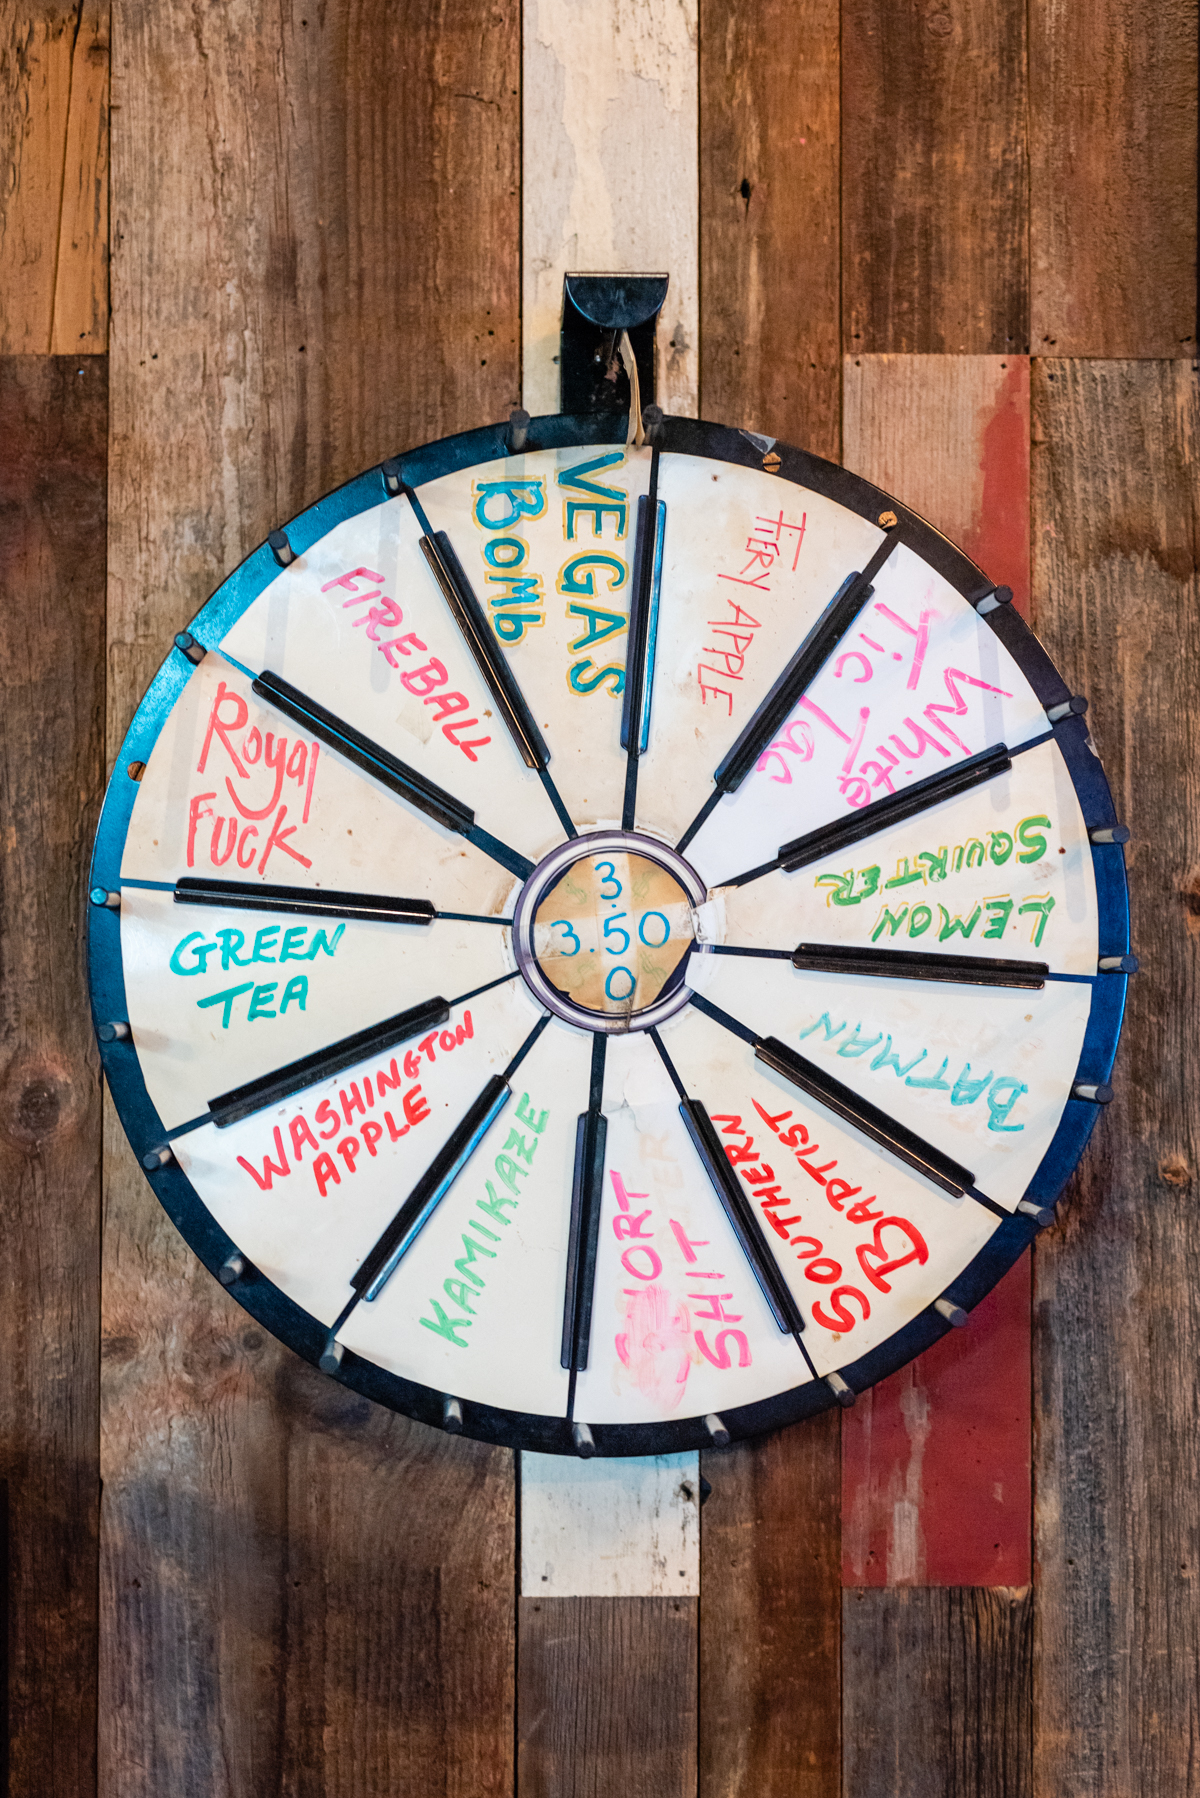 VEGAS
BOMb
FIERY APPLE
White
Tic Tac
LEMON
SQUIRTER
BATMAN
SOUTHERN
BAPTIST
SHORT
SHIT
KAMIKAZE
WASHINGTON
APPLE
GREEN
TEA
Royal
FUCK
FIREBALL
3.
3.50
0